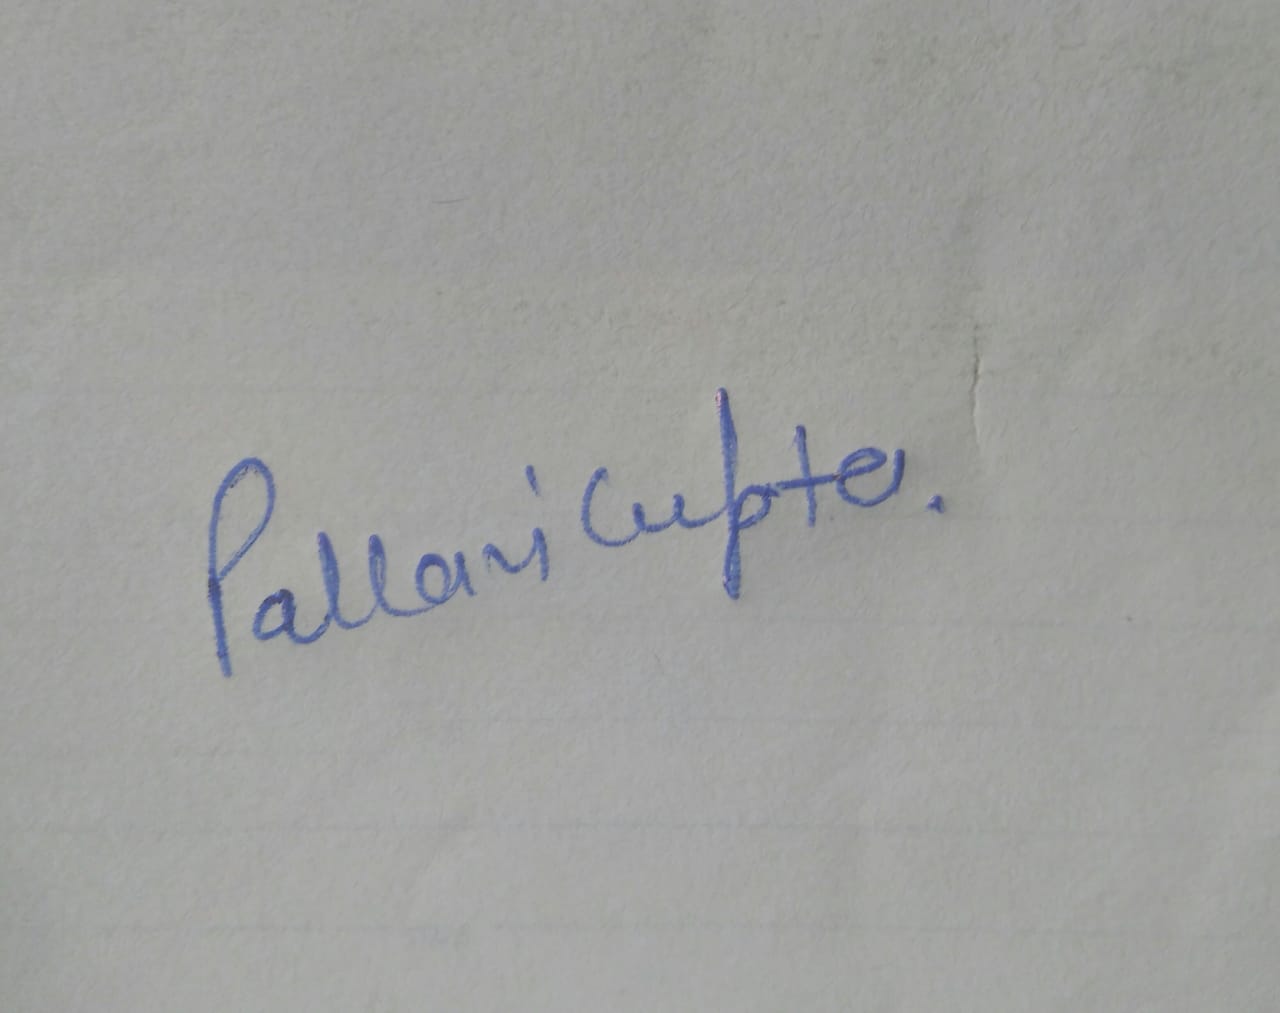 Pallavi Gupta.